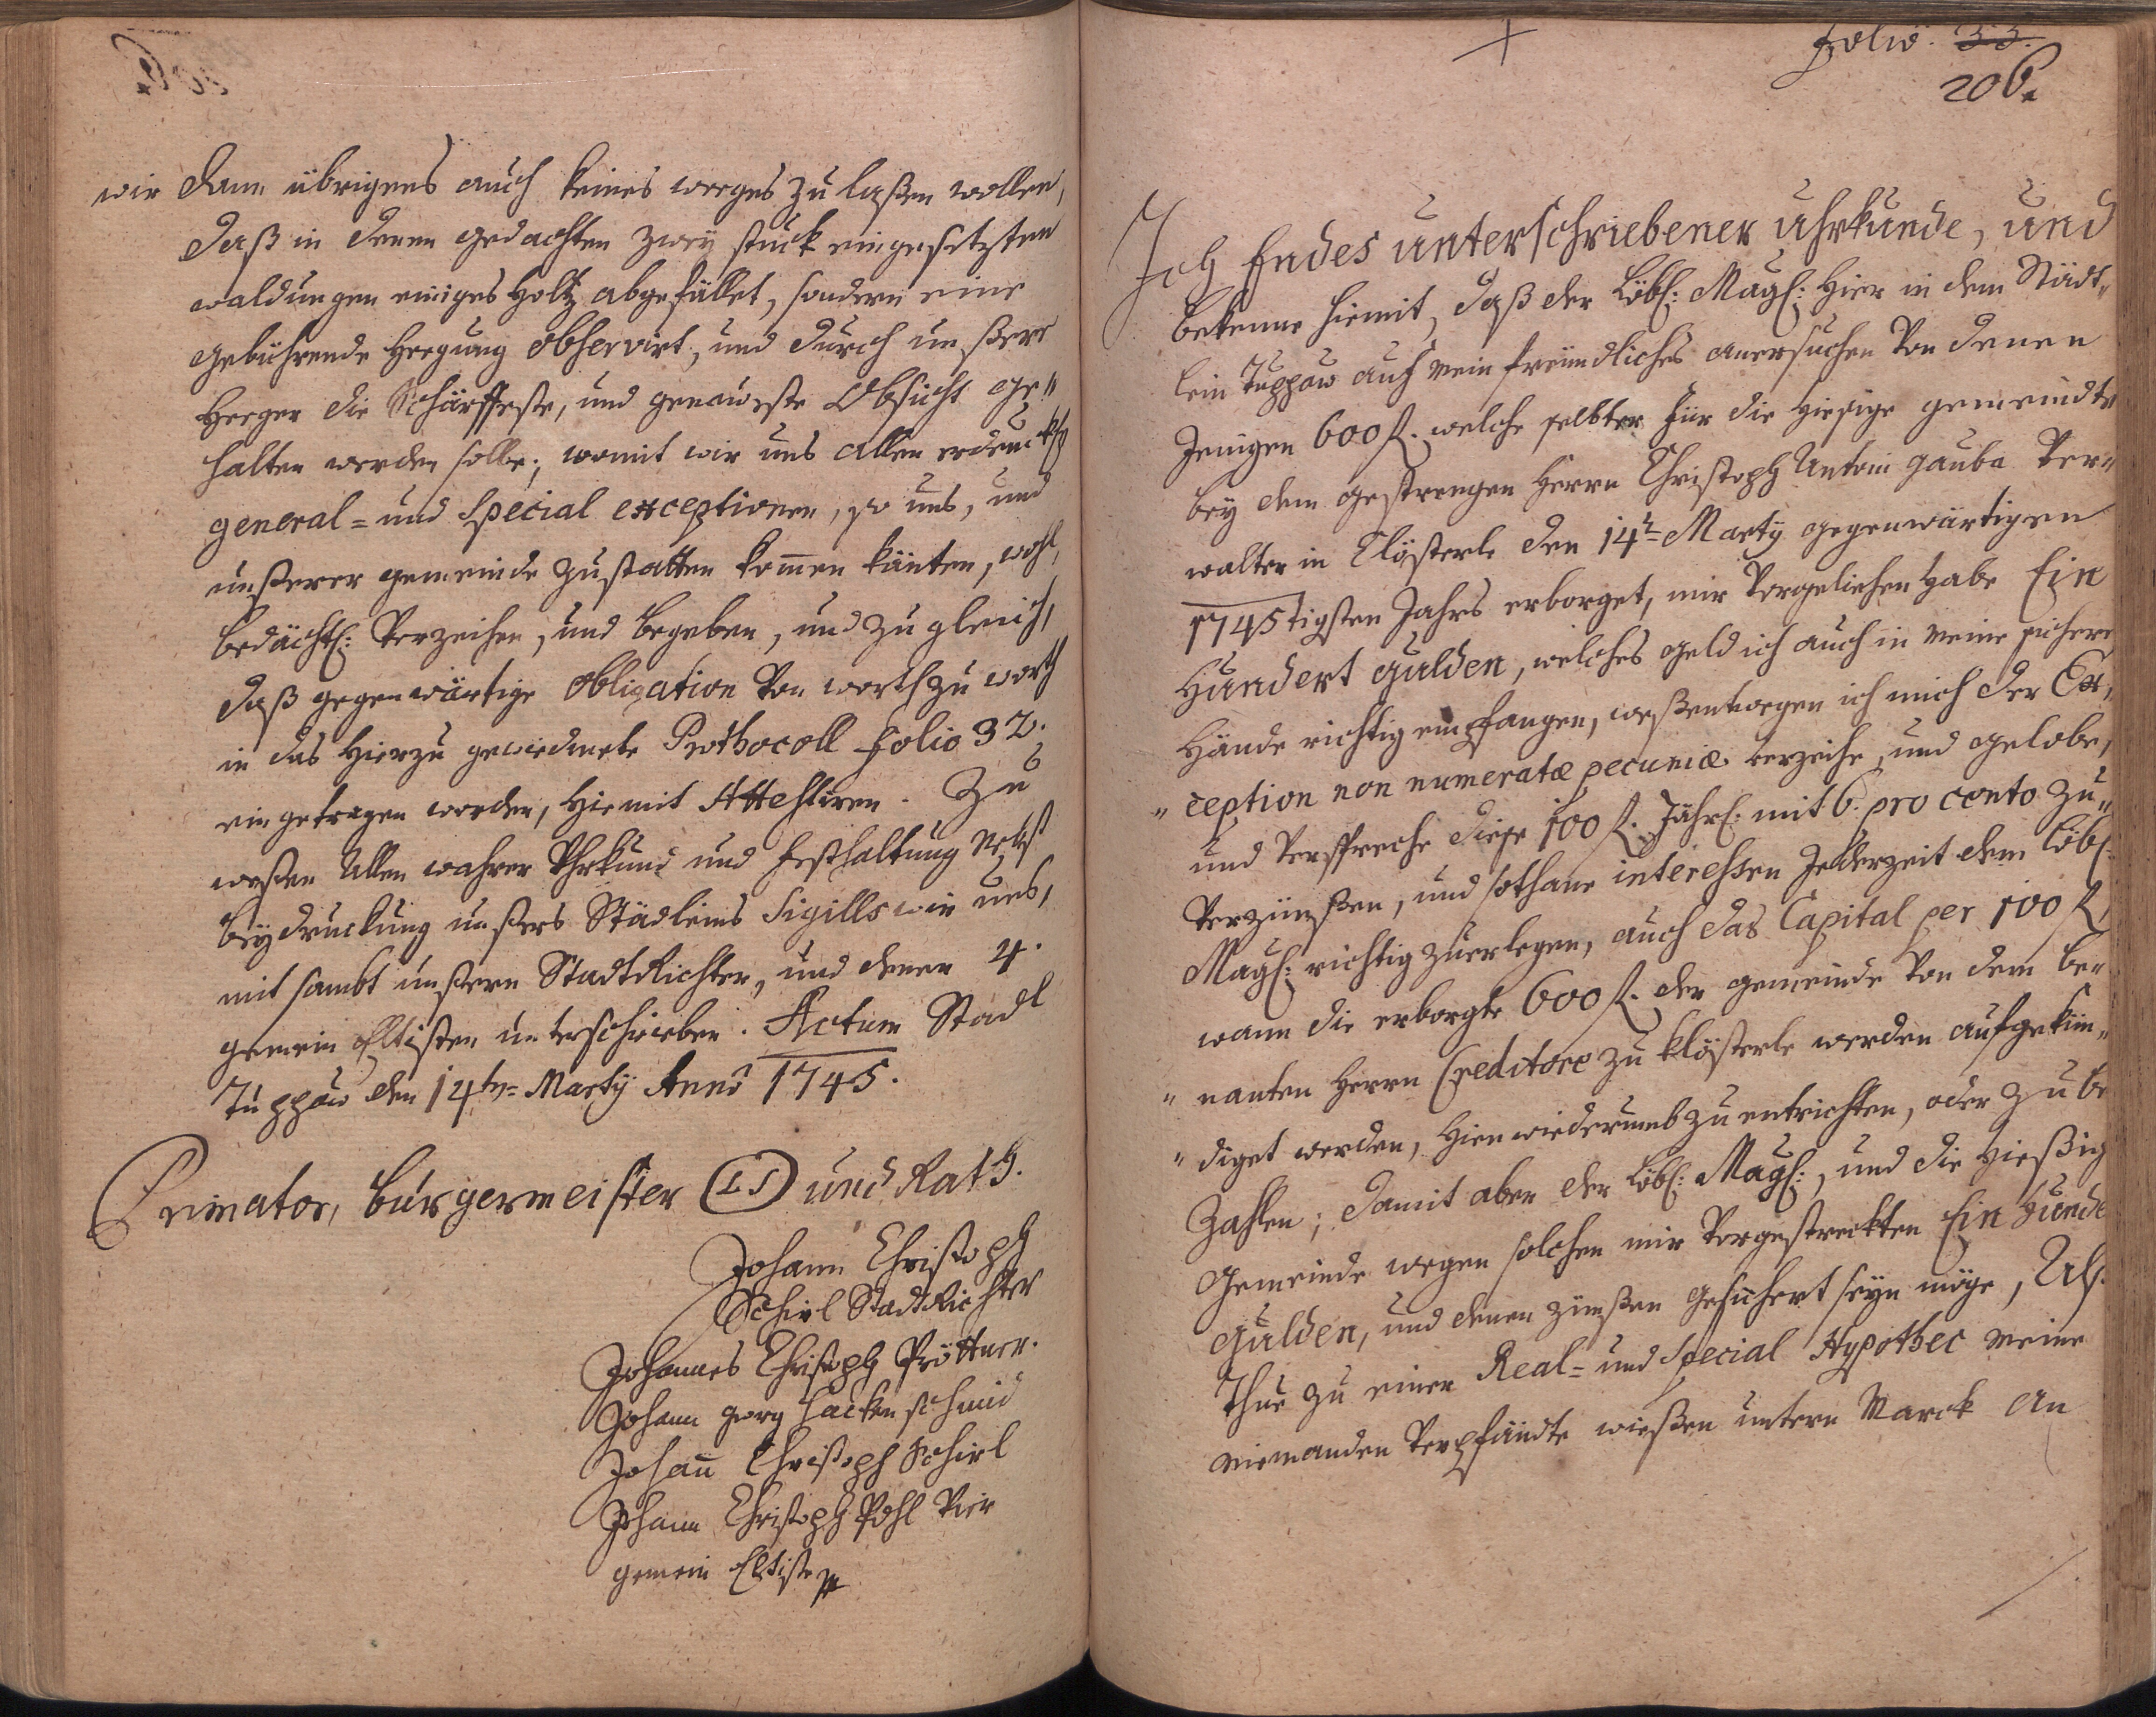 wir dann übrigens auch keines weeges zu laßen wollen,
daß in denen gedachten zweÿ stuck eingesetzten
waldungen einiges Holtz abgefället, sondern eine
gebührende Heegung observirt, und durch unßere
Heeger die Schärffeste, und genaueste Obsicht ge-"
halten werden solle; womit wir uns allen erdencklh
general= und Special exceptionen, so uns, und
unßerer gemeinde zustatten kom̄en könten, wohl,
bedächtl: Verzeihen, und begeben, und zu gleich,
daß gegenwärtige Obligation Von worth zu worth
in das Hierzu gewiedmete Prothocoll folio 32.
eingetragen worden, Hiemit Attestiren. Zu
weßen Allen wahrer Uhrkund und festhaltung nebst
beÿdruckung unßers Städleins Sigills wir uns,
mit sambt unßern StadtRichter, und denen 4.
gemein Eltisten unterschrieben. Actum Stadl
Tuppau den 14ten= Martÿ Anno 1745.
Primator, bürgermeister (LS) und Rath.
Johann Christoph
Schirl StadtRichter
Johannes Christoph Pröttner.
Johann georg Hackenschmid
Johan̄ Christoph Schirl
Johann Christoph Pohl Vier
gemein Eltiste
folio. 33.
206.
Ich Endes unterschriebener uhrkunde, und
bekenne hiemit, daß der Löbl: Mag: Hier in dem Städt,,
lein Tuppau auf mein freundliches anersuchen Von denen
Jenigen 600 f. welche selbter für die Hiesige gemeindte
beÿ dem gestrengen Herrn Christoph Antoni gauba Ver,,
walter in Clösterle den 14t= Martÿ gegenwärtigen
1745tigsten Jahrs erborget, mir Vorgeliehen habe Ein
Hundert gulden, welches geld ich auch in meine sichere
Hände richtig empfangen, weßentwegen ich mich der Ex,,
,, ception non numeratæ pecuniæ verzeihe, und gelobe,
und Verspreche diese 100 f. Jährl: mit 6. pro cento zu,,
Verzünßen, und sothane interessen Jederzeit dem Löbl:
Mag: richtig zuerlegen, auch das Capital per 100 f,
wann die erborgte 600 f. der gemeinde Von dem be,,
,, nanten Herrn Creditore zu Klösterle werden aufgekün,,
,, diget werden, Hien wiederumb zu entrichten, oder zu be
Zahlen; damit aber der Löbl: Mag:, und die Hießig
Gemeinde wegen solchen mir Vorgestreckten Ein Hunde
gulden, und denen zünßen gesichert seyn möge, Als.
Thue zu einer Real= und Special Hypothec meine
niemanden Verpfändte wießen untern Marck an